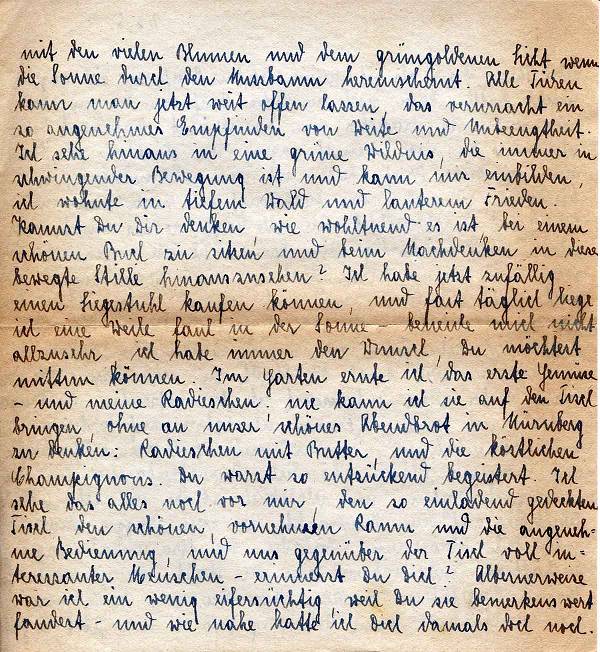 mit den vielen Blumen und dem grüngoldenen Licht, wenn
die Sonne durch den Nussbaum hereinscheint. Alle Türen
kann man jetzt weit offen lassen, das verursacht ein
so angenehmes Empfinden von Weite und Unbeengtheit.
Ich sehe hinaus in eine grüne Wildnis, die immer in
schwingender Bewegung ist und kann mir einbilden,
ich wohnte in tiefem Wald und lauterem Frieden.
Kannst Du Dir denken, wie wohltuend es ist, bei einem
schönen Buch zu sitzen, und beim Nachdenken in diese
bewegte Stille hinauszusehen? Ich habe jetzt zufällig
einen Liegestuhl kaufen können, und fast täglich liege
ich eine Weile faul in der Sonne – beneide mich nicht
allzusehr, ich habe immer den Wunsch, Du möchtest
mittun können. Im Garten ernte ich das erste Gemüse
– und meine Radieschen: nie kann ich sie auf den Tisch
bringen, ohne an unser schönes Abendbrot in Nürnberg
zu denken: Radieschen mit Butter, und die köstlichen
Champignons. Du warst so entzückend begeistert. Ich
sehe das alles noch vor mir, den so einladend gedeckten
Tisch, den schönen, vornehmen Raum und die angeneh-
me Bedienung, und uns gegenüber der Tisch voll in-
teressanter Menschen – erinnerst Du Dich? Albernerweise
war ich ein wenig eifersüchtig, weil Du sie bemerkenswert
fandest – und wie nahe hatte ich Dich damals doch noch.